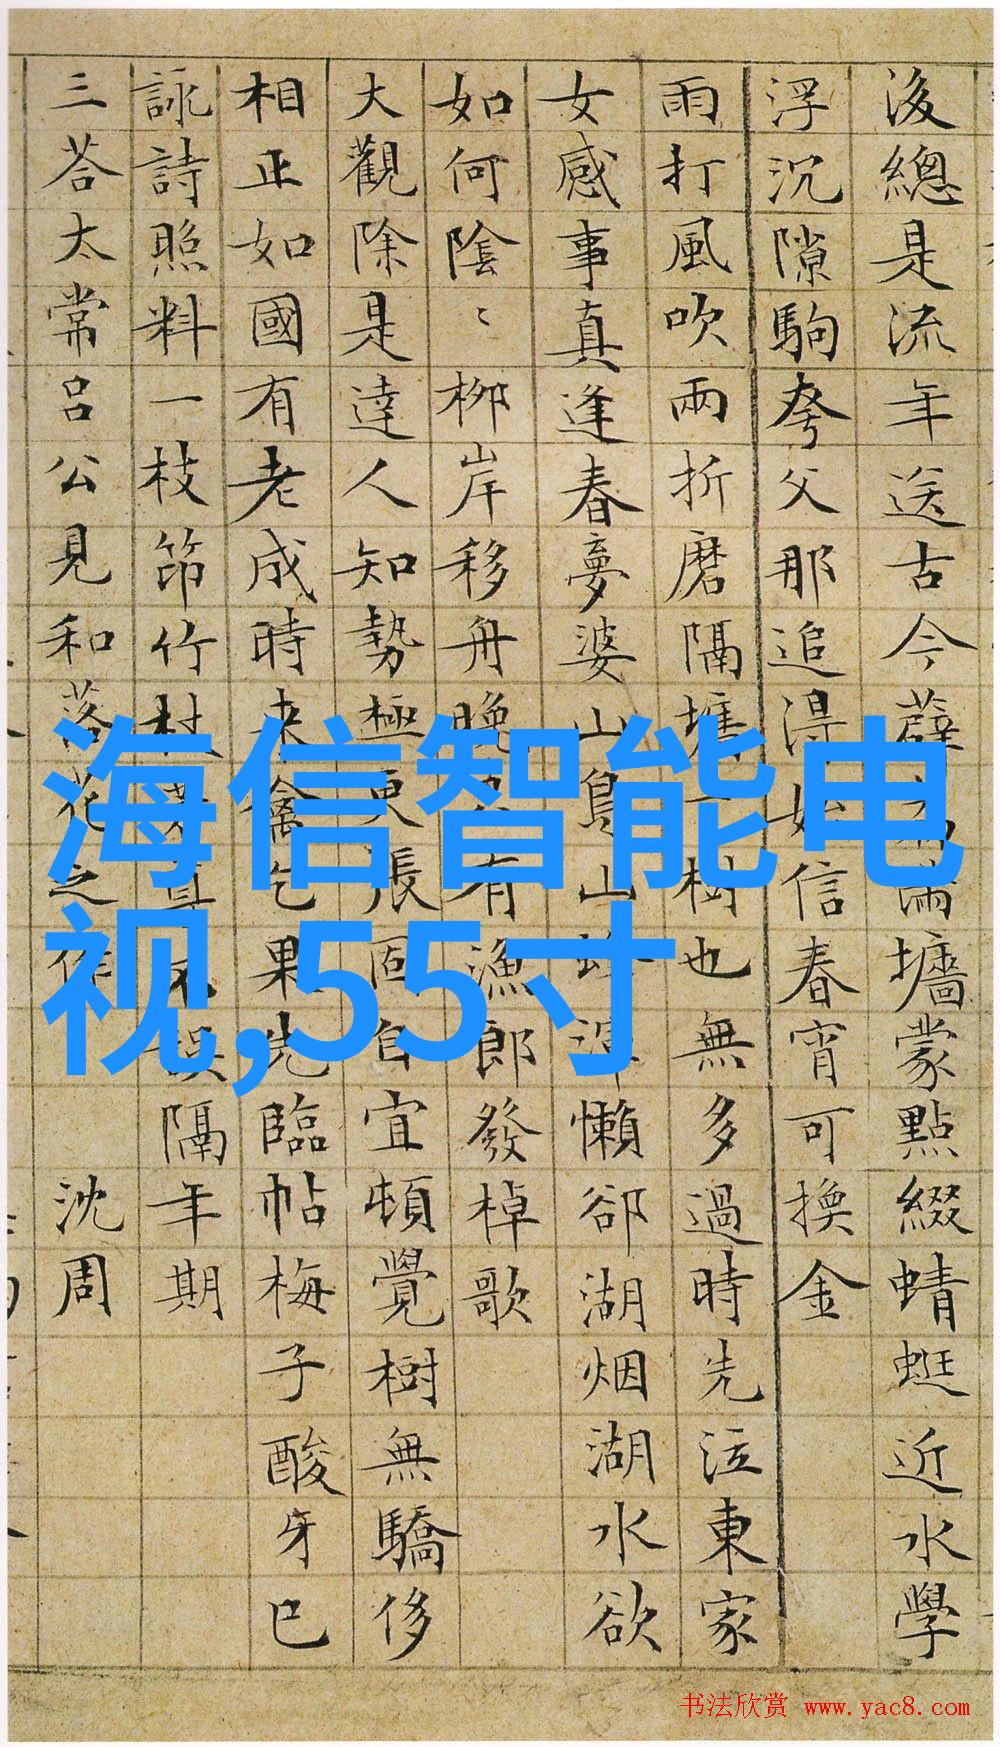 後總是流年送古今薜滿墻蒙點綴蜻蜓近水學
浮沉隙駒夸父那追得始信春宵可換金
雨打風吹兩折磨隔墻一樹也無多過時先泣東家
女感事真逢春夢婆山鳥山蜂渾懶卻湖烟湖水欲
如何陰〻柳岸移舟晚有漁郎發棹歌
大觀除是達人知勢極更張固自宜頓覺樹無驕侈
相正如國有老成時來禽乞果先臨帖梅子酸牙已
詠詩照料一枝筇竹杖誤隔年期
三荅太常吕公見和落花之作 沈周
海信智能电
视,55寸
书法欣赏 www.yac8.com